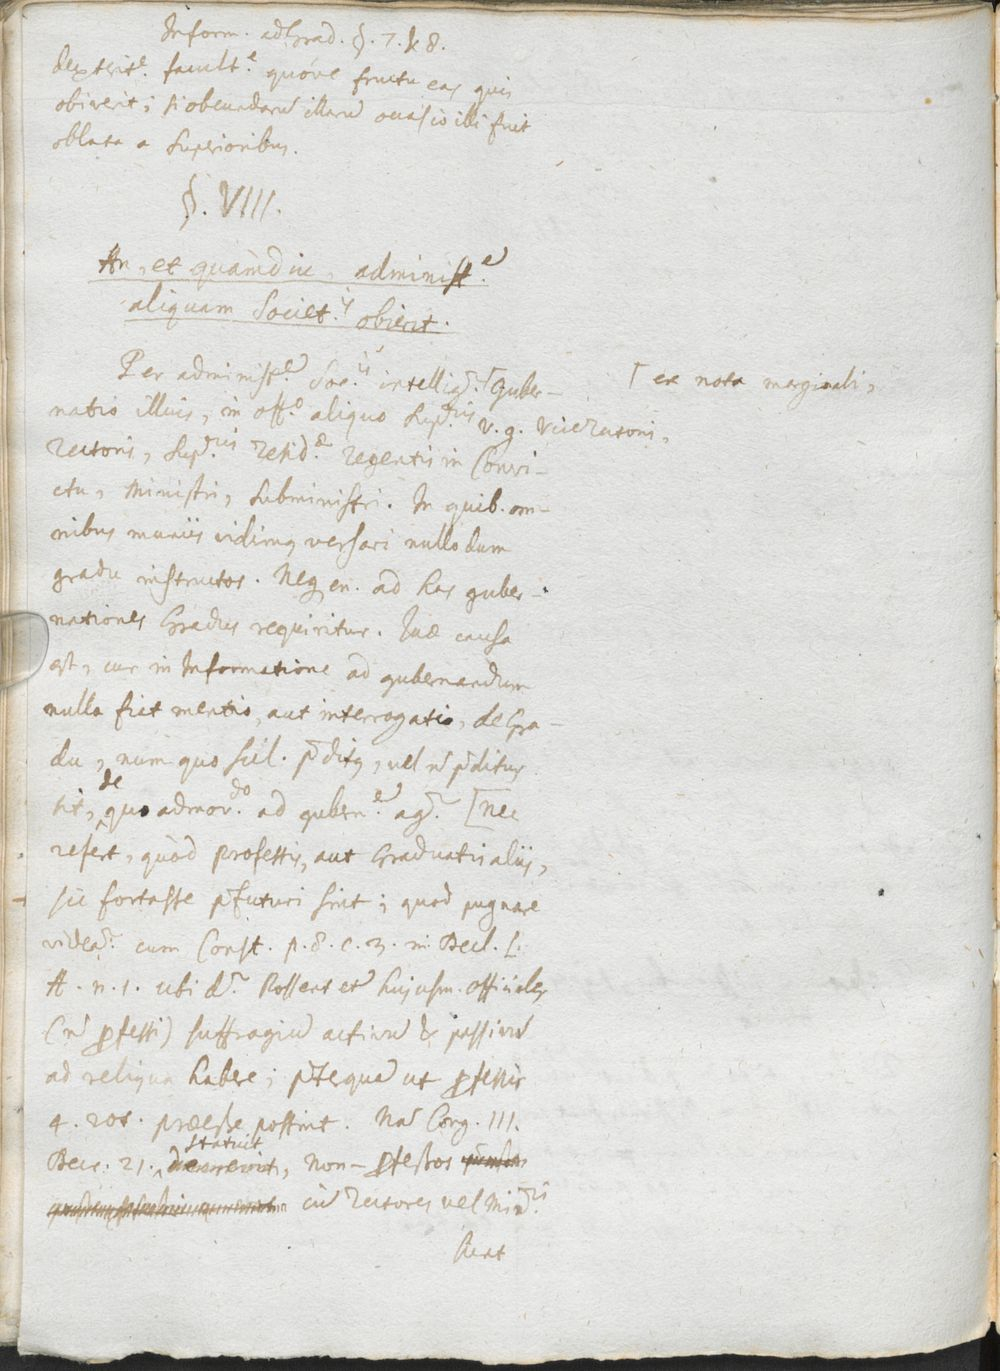 Inform. ad Grad. §. 7. & 8.
dexterit.e facult.e quóve fructu eas quis
obiverit; si obeundarū illarū occasio illi fuit
oblata a Superioribus.
§. VIII.
An, et quamdiu, administ.e
aliquam Societ.is obierit.
Per administ.e Soc.is intellig.r ⌈Guber-
⌈ ex nota marginali,
natio illius, in off.o aliquo Sup.ris v.g. Vicerectoris,
rectoris, Sup.ris resid.æ regentis in Convi-
ctu, Ministri, Subministri. In quib. om-
nibus muniis vidimus versari nullo dum
gradu instructos. Neq en. ad has guber-
nationes Gradus requiritur. Quæ causa
est, cur in Informatione ad gubernandum
nulla fiat mentio, aut interrogatio, de Gra-
du, num quo scil. p̄ditus, vel n̄ p̄ditus
sit, de quo admov.do ad gubern.e ag.r [Nec
refert, quòd professis, aut Graduatis aliis,
sic fortasse p̄futuri sint; quod pugnare
videa.r cum Const. p. 8. c. 3. in Decl. L:
A. n. 1. ubi d.r Possent et hujusm. officiales
(n̄ p̄fessi) suffragiū activū & passivū
ad reliqua habere; p̄terquā ut p̄fessis
4. vot. præesse possint. Nā Cong. III.
Decr. 21. statuit, non-p̄fessos
cū rectores vel Min.ri
sunt